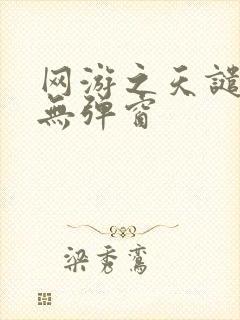 网游之天谴
無弹窗
梁秀鸾